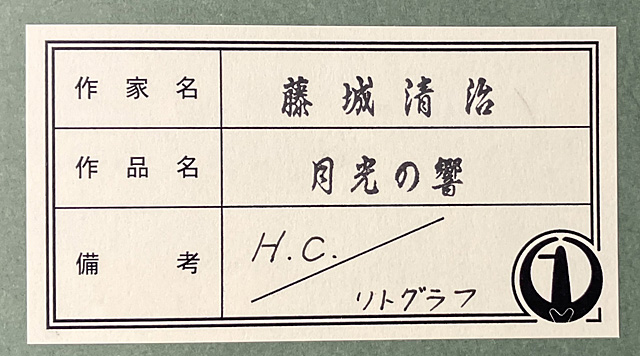 作家名 藤城清治
作品名 月光の響
備考 H.C.
リトグラフ